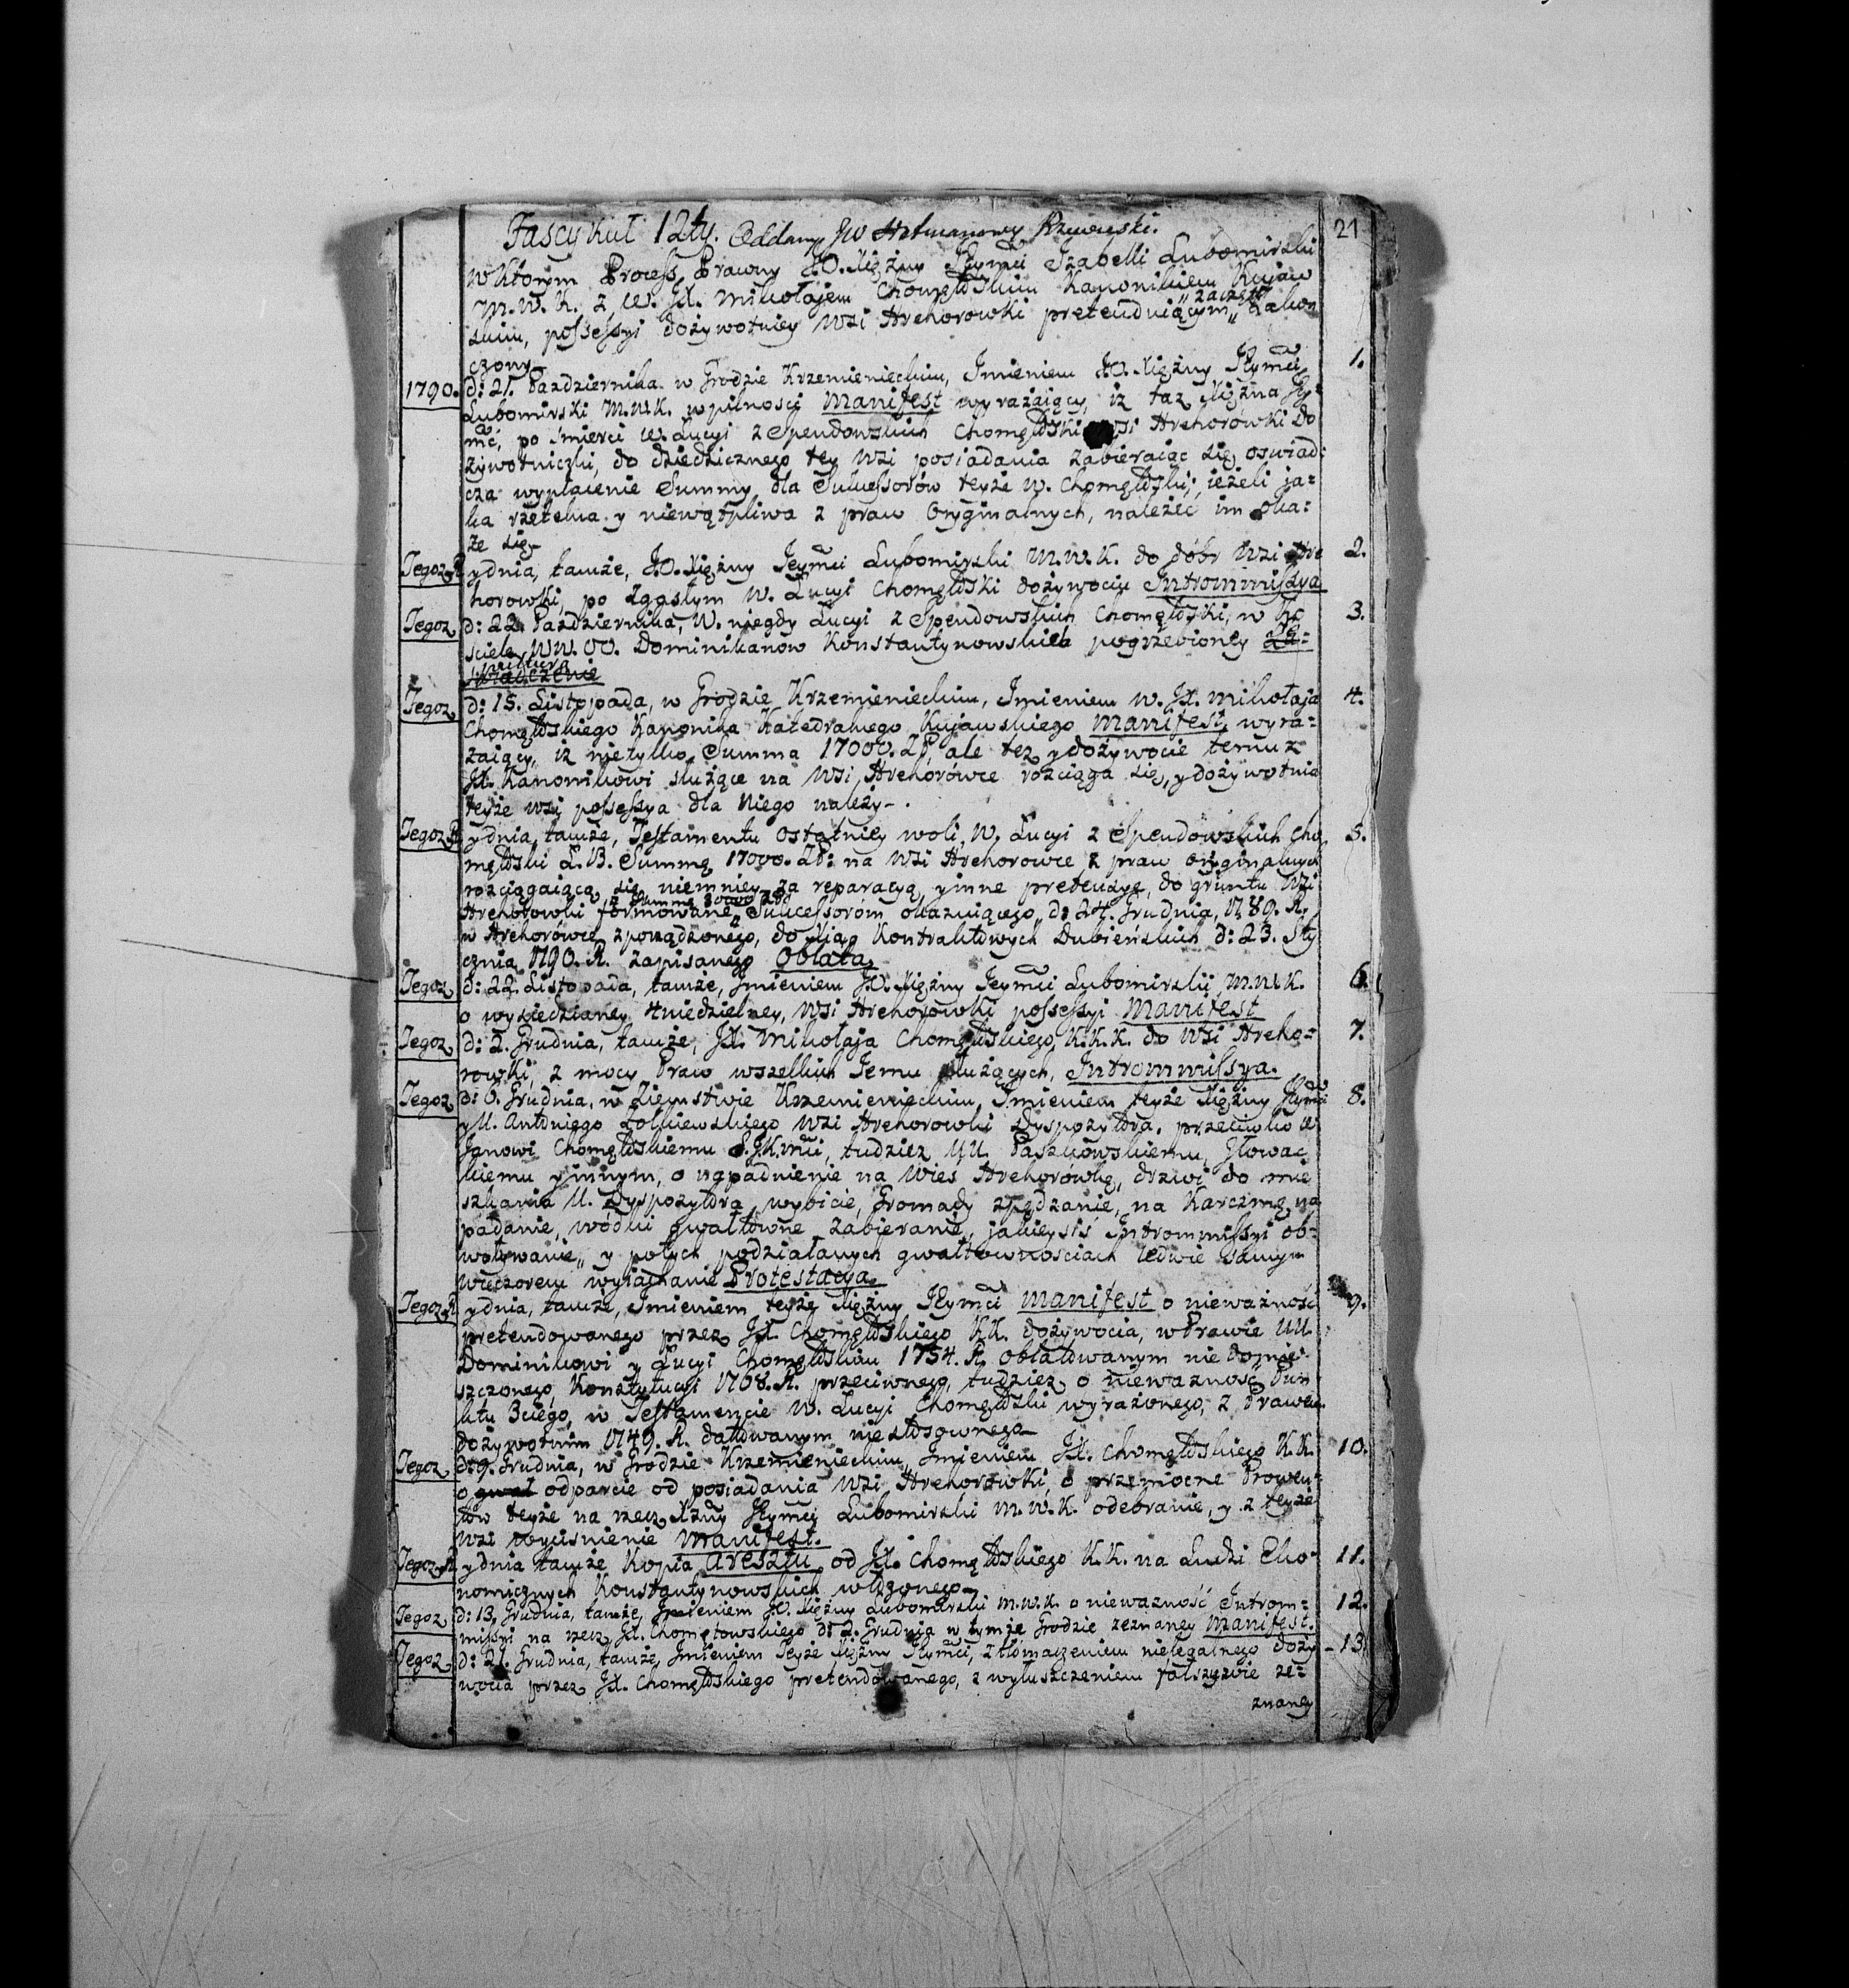 Fascykuł 12ty. Oddany JW Hetmanowy Rzewuski. 21
w Którym Process Prawny J.O. Xiężny Jeymci Izabelli Lubomirski
M.W.K. z W. JX. Mikołajem Chomętowskim Kanonikiem Kujaw
skim, possessyi dożywotniey wsi Hrehorowki pretenduiącym „zaczęty „Zakoń
czony
1790. d: 21. Pazdziernika w Grodzie Krzemienieckim, Imieniem J.O. Xiężny Jeymci 1.
Lubomirski M.W.K. w pilności Manifest wyrażaiący, iż taż Xiężna Jey-
mć, po śmierci W. Lucyi z Spendowskich Chomętowski wsi Hrehorówki Do
żywotniczki, do dziedzicznego tey wsi posiadania zabieraiąc się, oswiad:
cza wypłacenie Summy dla Sukcessorów teyże W. Chomętowski; ieżeli ja=
ka rzetelna y niewątpliwa z praw Oryginalnych, należeć im oka=
że się
Tegoż R. y dnia, tamże, J.O. Xiężny Jeymci Lubomirski M.W.K. do dóbr wsi Hre 2.
horowki po zgasłym W. Lucyi Chomętowski dożywociu Intrommissya
Tegoż d: 22. Pazdziernika, W. niegdy Lucyi z Spendowskich Chomętowski, w Ko 3.
sciele WW. OO. Dominikanow Konstantynowskich pogrzebioney Za=
swiadczenie
Tegoż d: 15. Listopada, w Grodzie Krzemienieckim, Imieniem W. JX. Mikołaja 4.
Chomętowskiego Kanonika Katedralnego Kujawskiego Manifest, wyra=
żaiący, iż nietylko Summa 17000. Zł, ale tez y dożywocie temuż
JX. Kanonikowi służące na wsi Hrehorówce rozciąga się, y dożywotnia
teyże wsi possessya dla Niego należy.
Tegoż R. y dnia, tamże, Testamentu ostatniey woli, W. Lucyi z Spendowskich Cho 5.
mętowski Z.B. Summę 17000. Zł: na wsi Hrehorowce z praw oryginalnych
rozciągaiącą się, niemniey za reparacyą, y inne pretensye, do gruntu wsi
Hrehorowki formowane, „Summę „Sukcessorom okazuiącego, d: 24. Grudnia, 1789. R.
w Hrehorówce zporządzonego, do Xiąg Kontraktowych Dubieńskich d: 23. Sty
cznia 1790. R. zapisanego Oblata.
Tegoż d: 22. Listopada, tamże, Imieniem J.O. Xiężny Jeymci Lubomirskiy M.W.K. 6.
o wysiedzianey 4niedzielney, wsi Hrehorowki possessyi Manifest
Tegoż d: 2. Grudnia, tamże, JX. Mikołaja Chomętowskiego K.K.K. do wsi Hreho= 7.
rowki, z mocy Praw wszelkich Jemu służących, Intrommissya.
Tegoż d: 6. Grudnia, w Ziemstwie Krzemienieckim, Imieniem teyże Xiężny Jeymci 8.
y U. Antoniego Żołkiewskiego wsi Hrehorowki Dyspozytora, przeciwko W
Janowi Chomętowskiemu S.J.K.mći, tudzież UU. Paszkowskiemu, Głowac
kiemu y innym, o napadnienie na Wies Hrehorówkę, drzwi do mie
szkania U. Dyspozytora wybicie, Gromady zpędzanie, na Karczmę na
padanie, wódki gwałtowne zabieranie, jakieysiś Intrommissyi ob-
woływanie, y potych podziałanych gwałtownościach ledwie samym
wieczorem wyiachanie Protestacya.
Tegoż R. y dnia, tamże, Imieniem teyże Xiężny Jeymci Manifest o nieważność 9.
pretendowanego przez JX. Chomętowskiego KK. dożywocia, w Prawie UU.
Dominikowi y Lucyi Chomętowskim 1754. R. oblatowanym nie domie=
szczonego, Konstytucyi 1768. R. przeciwnego, tudzież o nieważność Pun
ktu 3ciego, w Testamencie W. Lucyi Chomętowski wyrażonego, z Prawem
dożywotnim 1749. R. datowanym niestosownego
Tegoż d: 9. Grudnia, w Grodzie Krzemienieckim, Imieniem JX. Chomętowskiego K.K. 10.
o gwał odparcie od posiadania wsi Hrehorowki, o przemocne Prowen-
tow teyże na rzecz Xżny Jeymci Lubomirski M.W.K. odebranie, y z teyże
wsi wyciśnienie Manifest.
Tegoż R. y dnia tamże Kopia Aresztu, od JX. Chomętowskiego K.K. na Ludzi Eko- 11.
nomicznych Konstantynowskich włożonego
Tegoż d: 13. Grudnia, tamże, Imieniem J.O. Xiężny Lubomirski M.W.K. o nieważność Introm= 12.
missyi na rzecz JX. Chomętowskiego d: 2. Grudnia w tymże Grodzie zeznaney Manifest.
Tegoż d: 21. Grudnia, tamże, Imieniem Teyże Xiężny Jeymci, z tłómaczeniem nielegalnego doży- 13.
wocia przez JX. Chomętowskiego pretendowanego, z wyłuszczeniem fałszywie ze=
znaney